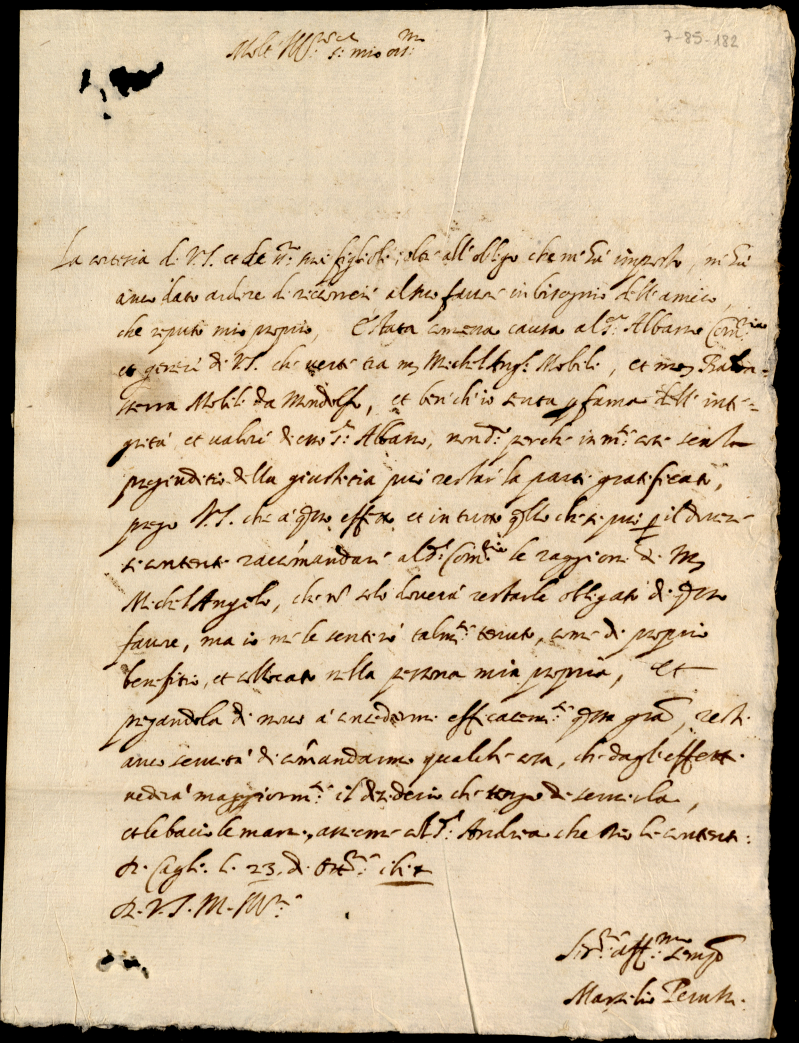 7-85-182
Molt Ill.re s.r mio oss.mo
La cortesia di V.S. et de s.ri suoi figlioli, oltr'all'obligo che m'hà imposto, m'hà
anco dato ardire di ricorrere al suo favore in bisogno dell'amico,
che reputo mio proprio, È stata comessa causa al s.r Albano Com.rio
et genero di V.S. che verte tra m. Michel Angelo Mobili, et m.
Mobili da Mondolfo, et bench'io senta p fama dell'inte-
grità et valore di esso s.r Albano, nond.o perche in m.te cose senza
pregiuditio della giustitia può restar la parte gratificata,
prego V.S. che à q.sto effetto et in tutto q.llo che si può p il dovere
si contenti raccomandare al s.r Com.rio le raggioni di m.
Michel Angelo, che nō solo doverà restarle obligato di q.sto
favore, ma io me le sentirò talm.te tenuto, come di proprio
benefitio, et collocato nella persona mia propria, Et
pregandola di novo à concederme efficacem.te q.sta gra, resti
anco servita di comandarme qualche cosa, che dagli effetti
vedrà maggiorm.te il desiderio che tengo di servirla,
et le bacio le mani, assieme col s.r Andrea che Dio li contenti.
Di Cagli li 23 di
Di V.S. M. Ill.re
Ser.re aff.mo sempre